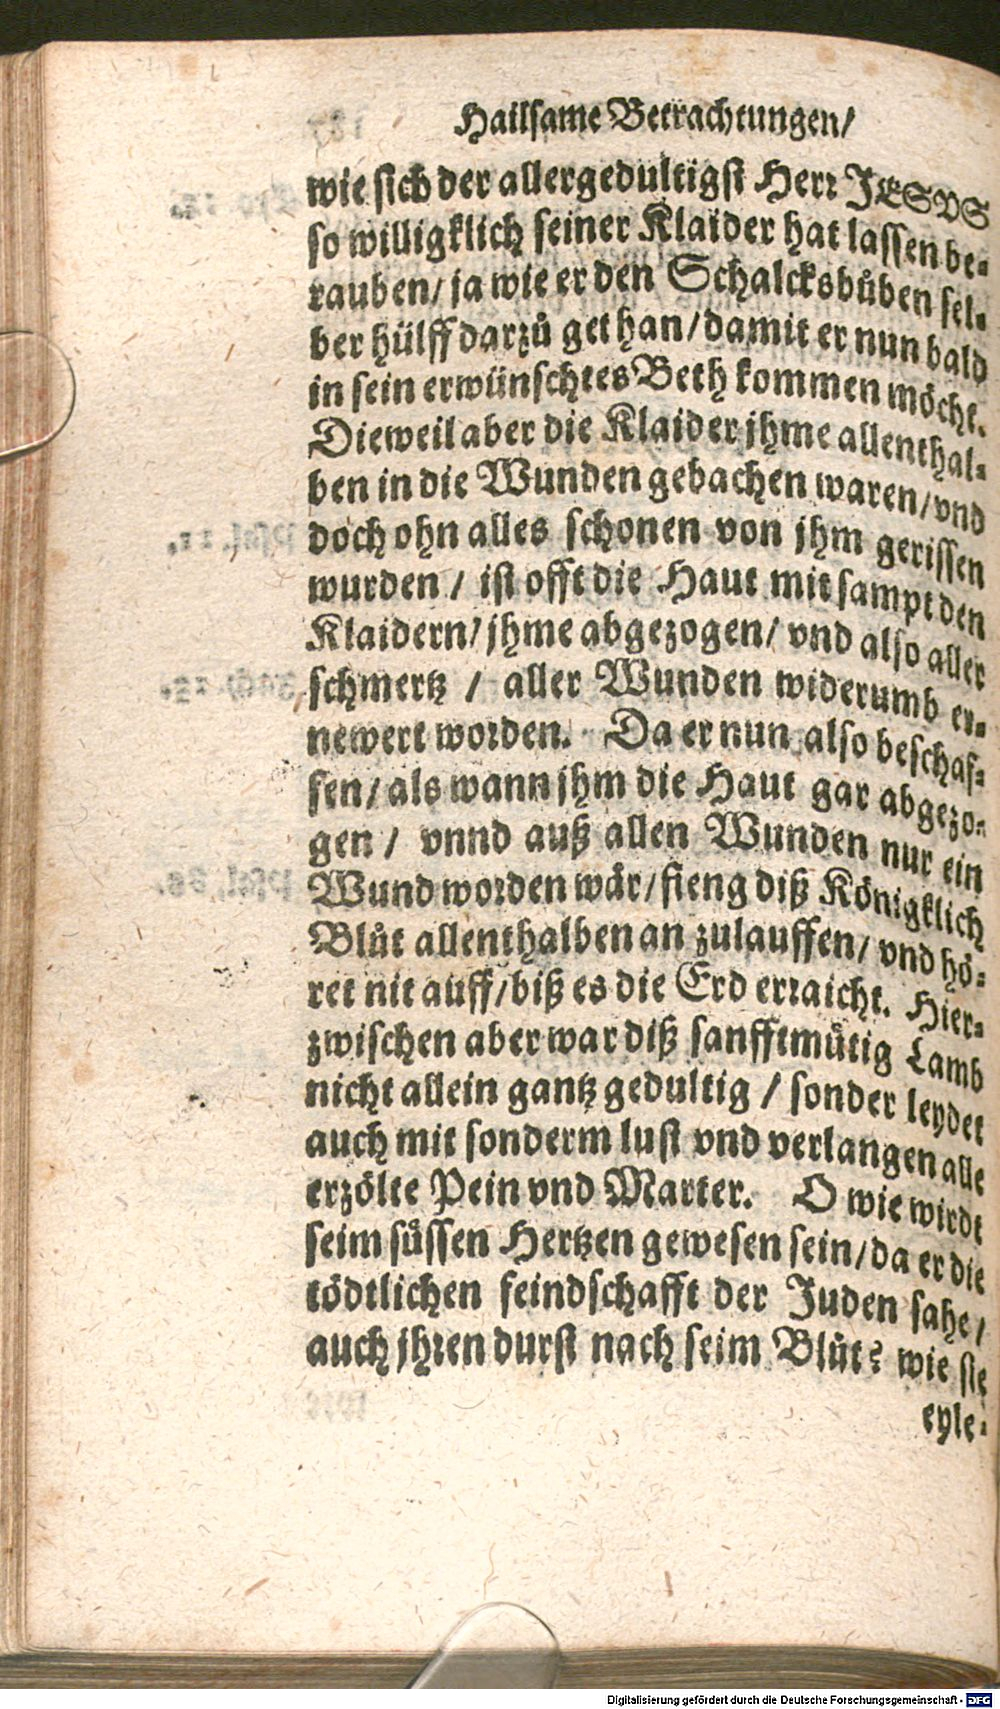 Hailsame Betrachtungen/
wie sich der allergedultigst Herr JESVS
so willigklich seiner Klaider hat lassen be-
rauben/ ja wie er den Schalcksbůben sel-
ber hülff darzů gethan/ damit er nun bald
in sein erwünschtes Beth kommen möcht.
Dieweil aber die Klaider jhme allenthal-
ben in die Wunden gebachen waren/ vnd
doch ohn alles schonen von jhm gerissen
wurden / ist offt die Haut mit sampt den
Klaidern/ jhme abgezogen/ vnd also aller
schmertz / aller Wunden widerumb er-
newert worden. Da er nun also beschaf-
fen/ als wann jhm die Haut gar abgezo-
gen / vnnd auß allen Wunden nur ein
Wund worden wår/ fieng diß Königklich
Blůt allenthalben an zulauffen/ vnd hö-
ret nit auff/ biß es die Erd erraicht. Hier-
zwischen aber war diß sanfftmůtig Lamb
nicht allein gantz gedultig / sonder leydet
auch mit sonderm lust vnd verlangen alle
erzölte Pein vnd Marter. O wie wirdt
seim süssen Hertzen gewesen sein/ da er die
tödtlichen feindschafft der Juden sahe/
auch jhren durst nach seim Blůt? wie sie
eyle-
Digitalisierung gefördert durch die Deutsche Forschungsgemeinschaft - DFG